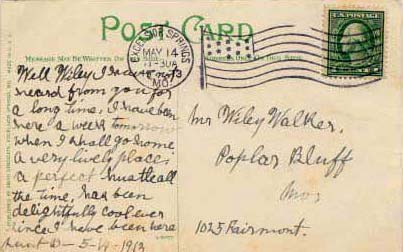 POST CARD
MESSAGE MAY BE WRITTEN ON THIS SIDE
EXCELSIOR SPRINGS
MAY 14
11-30A
MO.
U.S. POSTAGE
Well Wiley I have not
heard from you for
a long time, I have been
here a week tomorrow
when I shall go home
a very lively place,
a perfect hustle all
the time, has been
delightfully cool ever
since I have been here
Aunt D - 5-14-1913
Mr Wiley Walker,
Poplar Bluff
Mo,
1025 Fairmont.